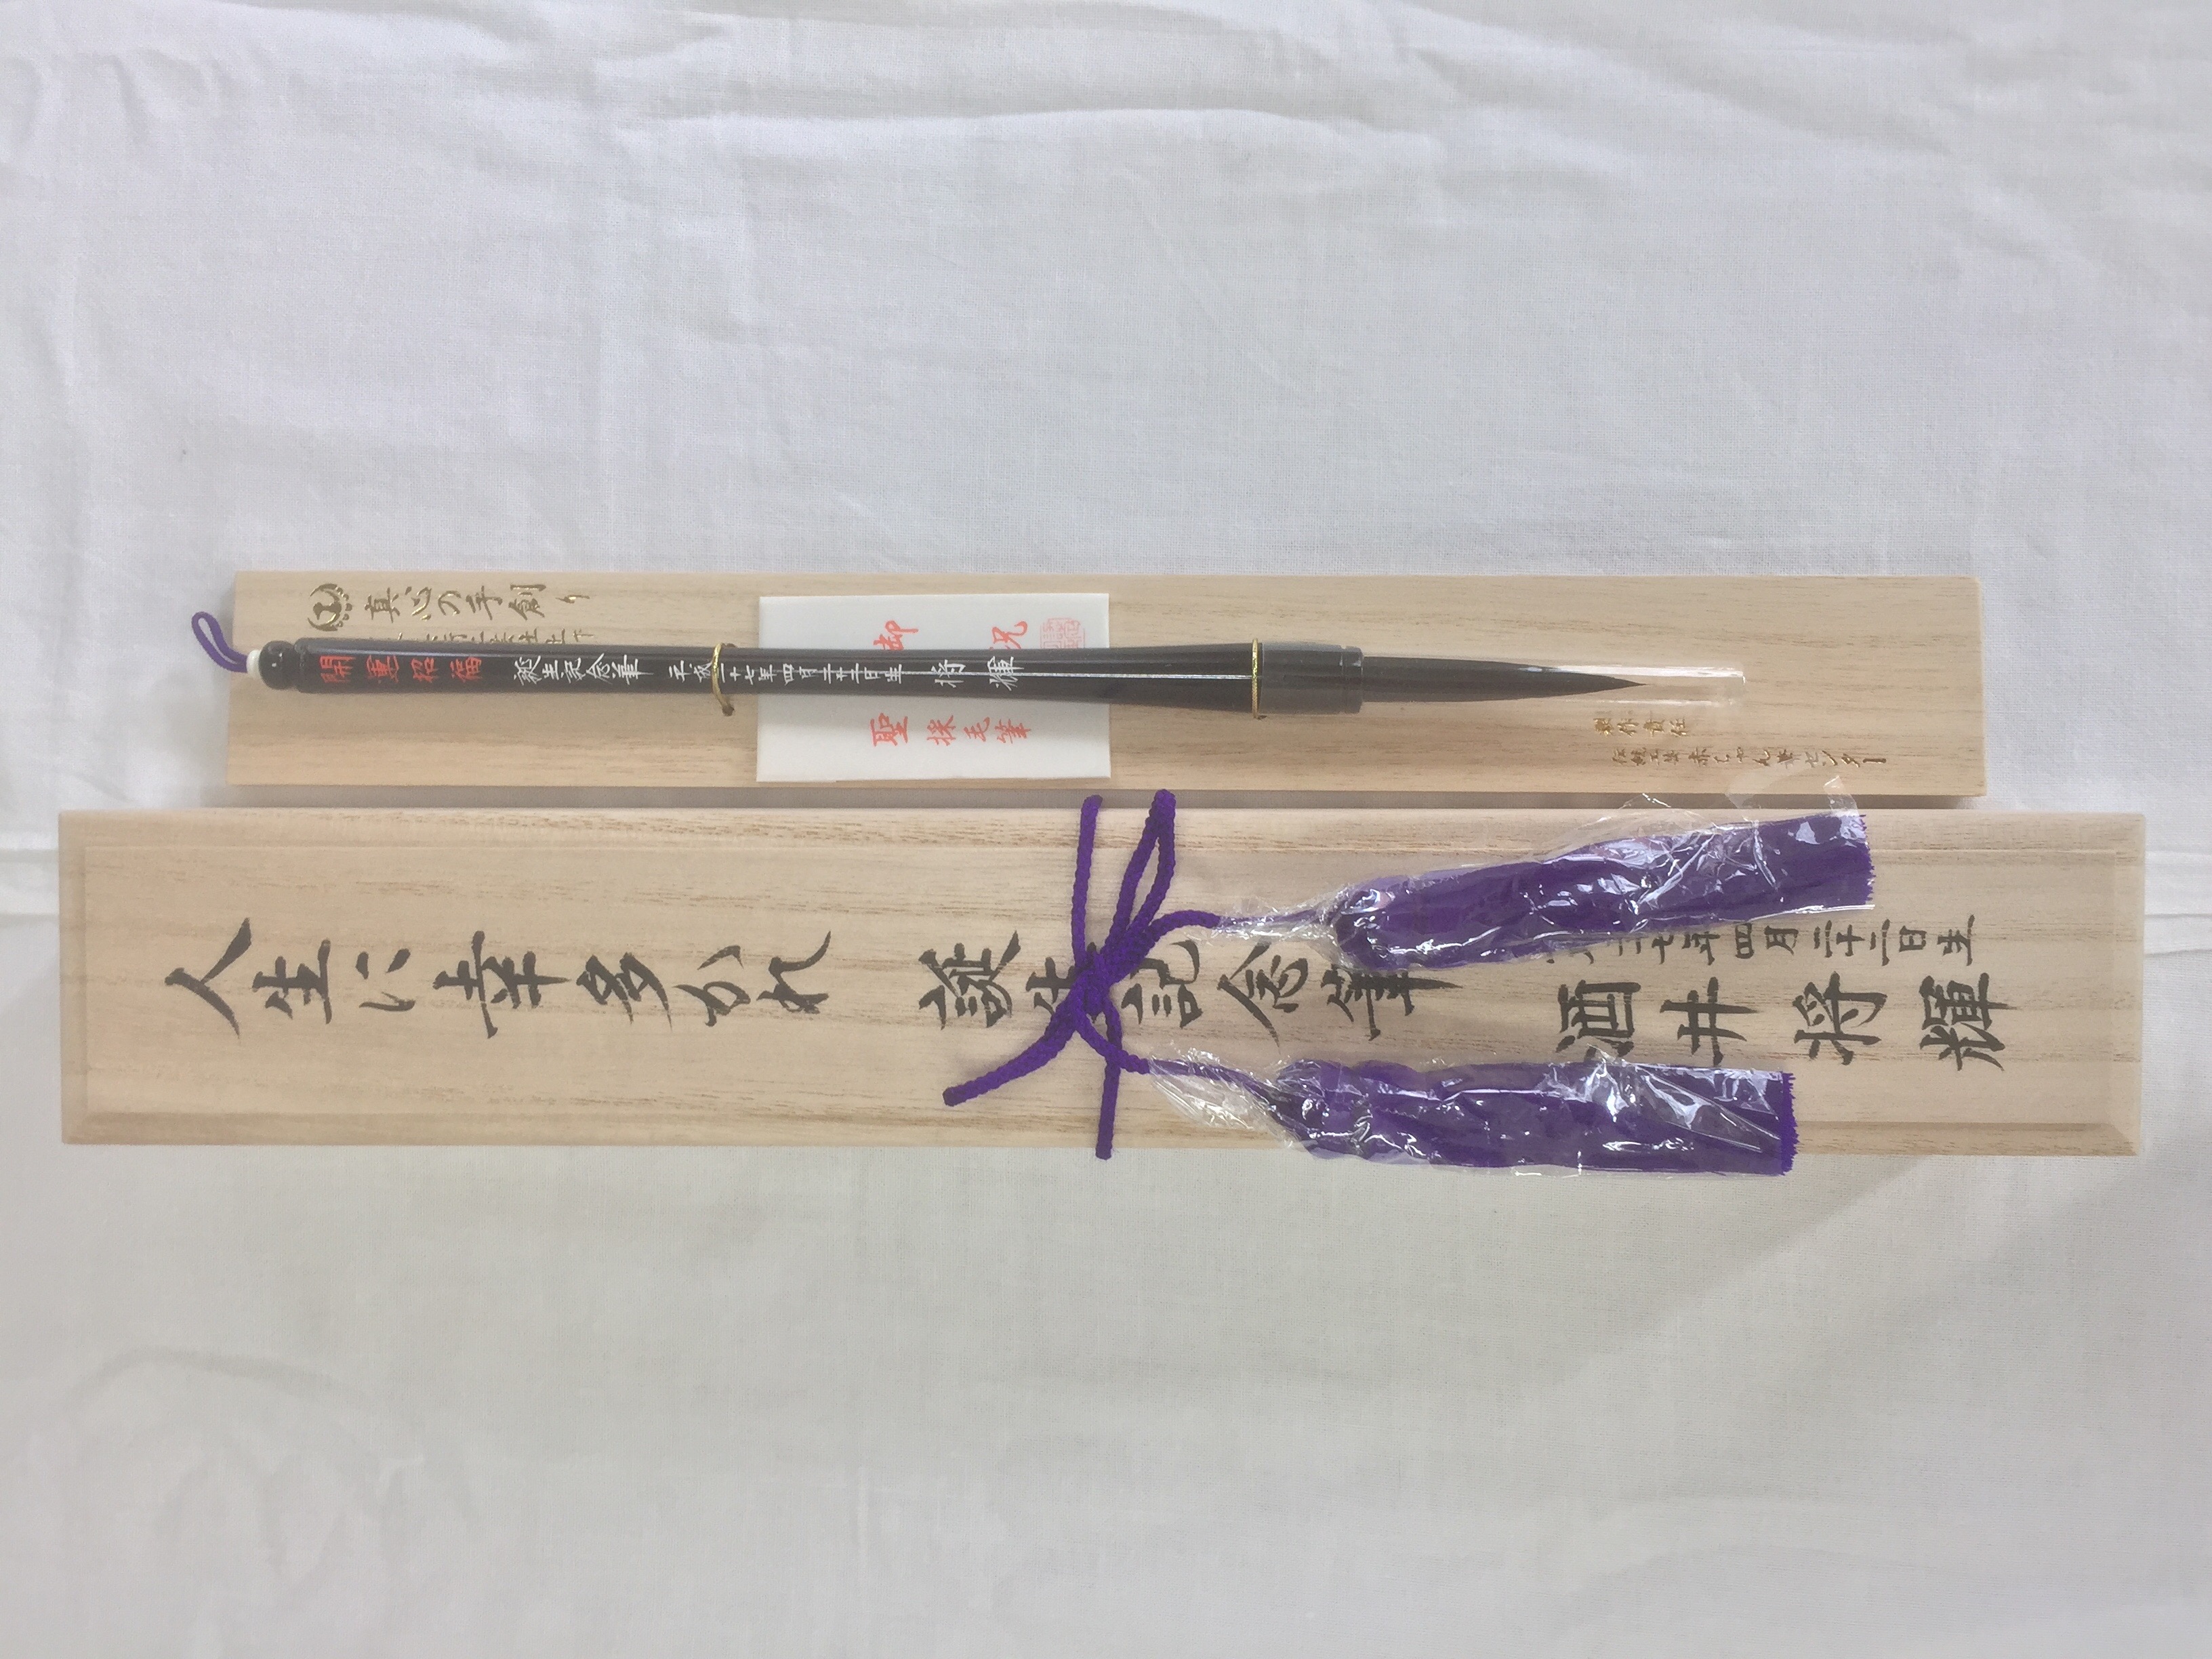 真心の手創り
開運招福 誕生記念筆 平成二十七年四月二十二日生 将輝
御
況
聖採毛筆
製作責任
伝統工芸 赤ちゃん筆センター
人生に幸多かれ 誕生記念筆
二十七年四月二十二日生
酒井将輝